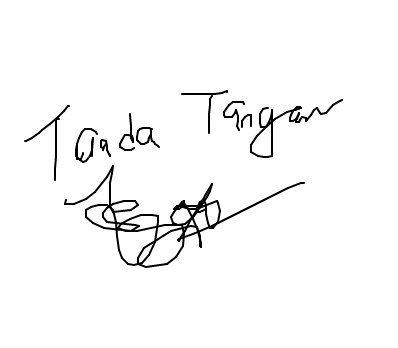 Tanda Tangan